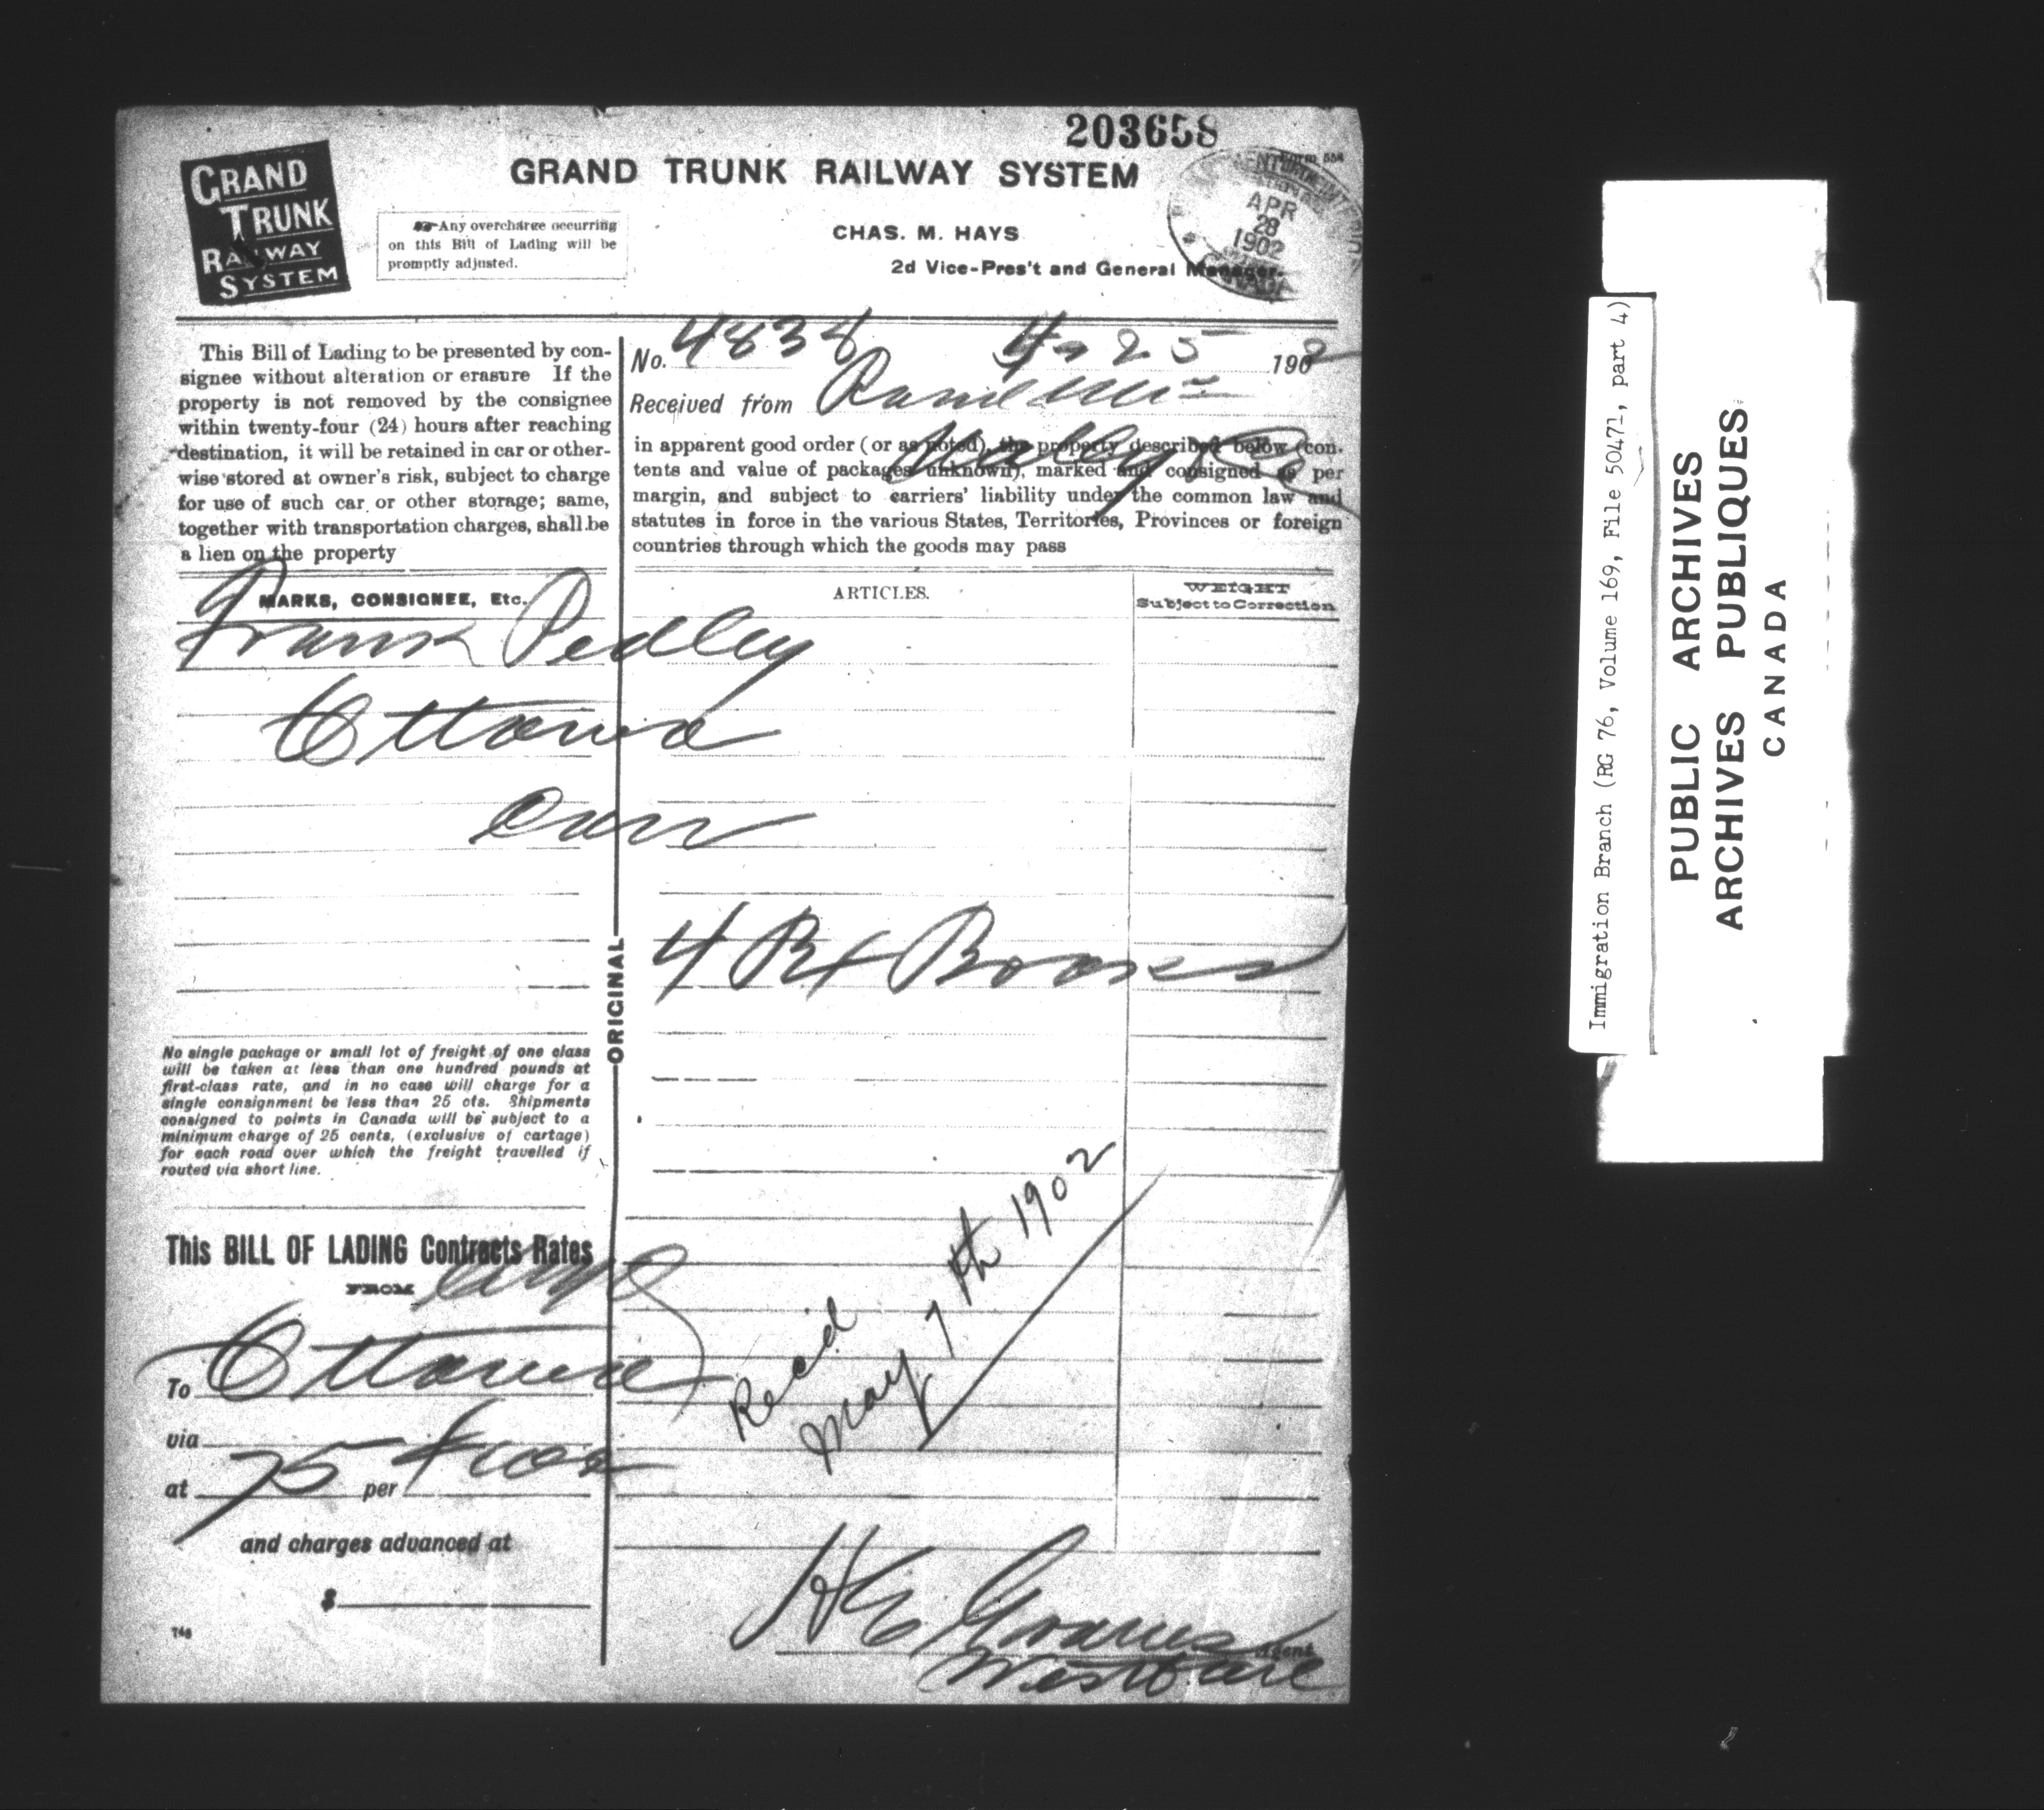 203658
GRAND TRUNK RAILWAY SYSTEM
GRAND TRUNK RAILWAY SYSTEM
Form 554
APR 28 1902
Any overcharge occurring
on this Bill of Lading will be
promptly adjusted.
CHAS. M. HAYS
2d Vice-Pres't and General Manager.
This Bill of Lading to be presented by con-
signee without alteration or erasure If the
property is not removed by the consignee
within twenty-four (24) hours after reaching
destination, it will be retained in car or other-
wise stored at owner's risk, subject to charge
for use of such car or other storage; same,
together with transportation charges, shall be
a lien on the property
No. 4838 4-25 1902
Received from Rand McNally & Co
in apparent good order (or as noted), the property described below (con-
tents and value of packages unknown), marked and consigned as per
margin, and subject to carriers' liability under the common law and
statutes in force in the various States, Territories, Provinces or foreign
countries through which the goods may pass
MARKS, CONSIGNEE, Etc.
ARTICLES.
WEIGHT
Subject to Correction
Frank Pedley
Ottawa
4 Bx Books
ORIGINAL
No single package or small lot of freight of one class
will be taken at less than one hundred pounds at
first-class rate, and in no case will charge for a
single consignment be less than 25 cts. Shipments
consigned to points in Canada will be subject to a
minimum charge of 25 cents, (exclusive of cartage)
for each road over which the freight travelled if
routed via short line.
This BILL OF LADING Contracts Rates
FROM
To Ottawa
via
at 75 per
and charges advanced at
$
746
Rec'd
May 7th 1902
Agent
Immigration Branch (RG 76, Volume 169, File 50471, part 4)
PUBLIC ARCHIVES
ARCHIVES PUBLIQUES
CANADA